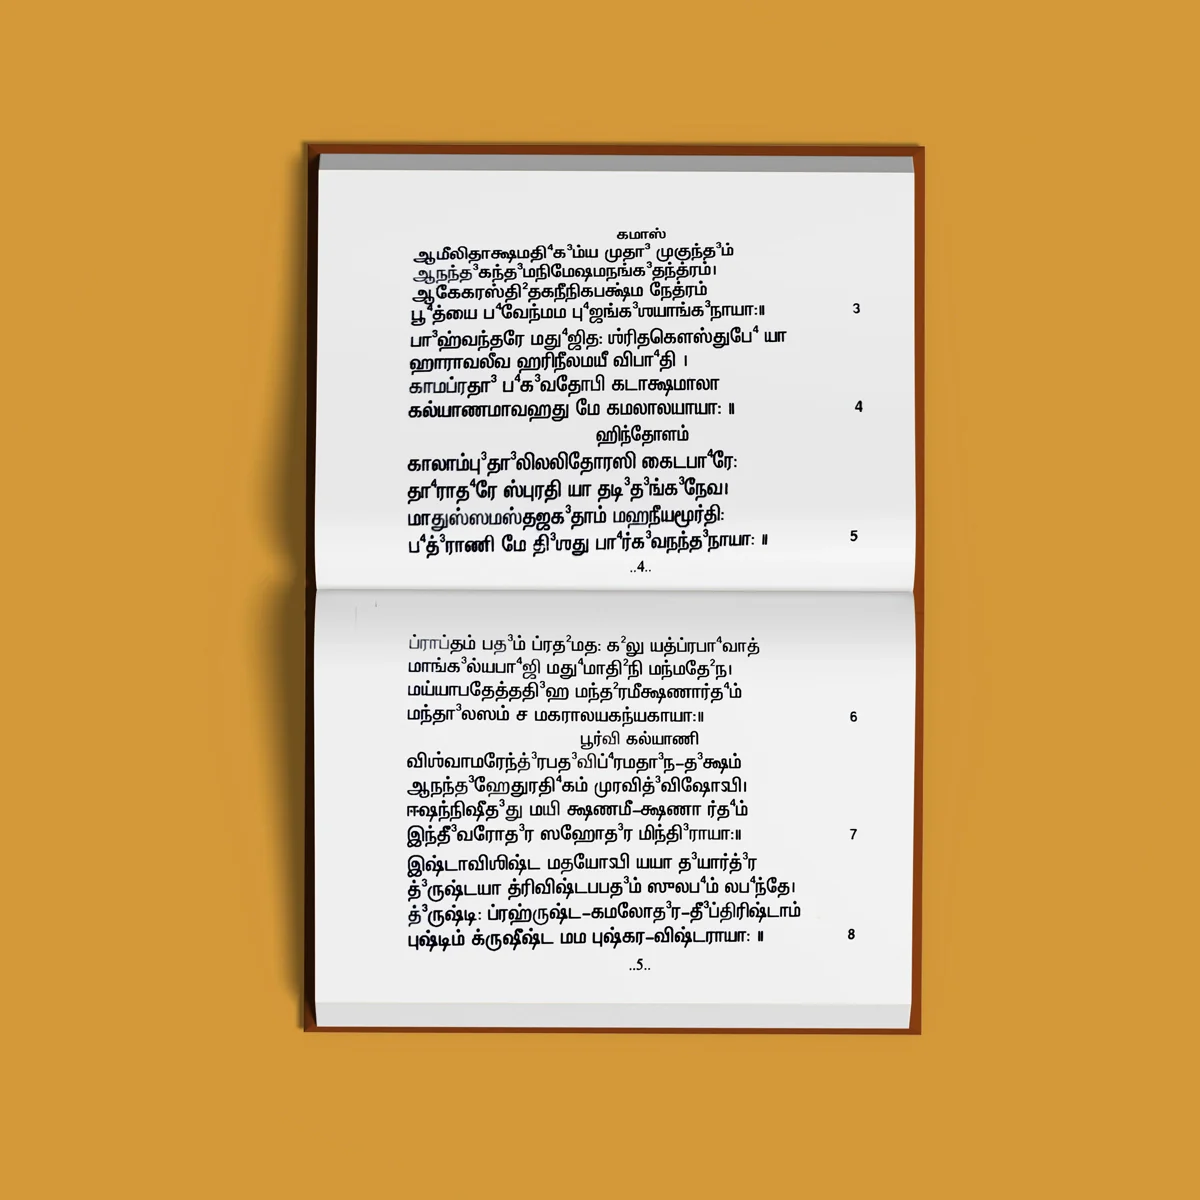 கமாஸ்
ஆமீலிதாக்ஷமதி⁴க³ம்ய முதா³ முகுந்த³ம்
ஆநந்த³கந்த³மநிமேஷமநங்க³தந்த்ரம்।
ஆகேகரஸ்தி²தகநீநிகபக்ஷ்ம நேத்ரம்
பூ⁴த்யை ப⁴வேந்மம பு⁴ஜங்க³ஶயாங்க³நாயா:॥ 3
பா³ஹ்வந்தரே மது⁴ஜித: ஶ்ரிதகௌஸ்துபே⁴ யா
ஹாராவலீவ ஹரிநீலமயீ விபா⁴தி ।
காமப்ரதா³ ப⁴க³வதோபி கடாக்ஷமாலா
கல்யாணமாவஹது மே கமலாலயாயா: ॥ 4
ஹிந்தோளம்
காலாம்பு³தா³லிலலிதோரஸி கைடபா⁴ரே:
தா⁴ராத⁴ரே ஸ்புரதி யா தடி³த³ங்க³நேவ।
மாதுஸ்ஸமஸ்தஜக³தாம் மஹநீயமூர்தி:
ப⁴த்³ராணி மே தி³ஶது பா⁴ர்க³வநந்த³நாயா: ॥ 5
..4..
ப்ராப்தம் பத³ம் ப்ரத²மத: க²லு யத்ப்ரபா⁴வாத்
மாங்க³ல்யபா⁴ஜி மது⁴மாதி²நி மந்மதே²ந।
மய்யாபதேத்ததி³ஹ மந்த²ரமீக்ஷணார்த⁴ம்
மந்தா³லஸம் ச மகராலயகந்யகாயா:॥ 6
பூர்வி கல்யாணி
விஶ்வாமரேந்த்³ரபத³விப்⁴ரமதா³ந-த³க்ஷம்
ஆநந்த³ஹேதுரதி⁴கம் முரவித்³விஷோஉபி।
ஈஷந்நிஷீத³து மயி க்ஷணமீ-க்ஷணா ர்த⁴ம்
இந்தீ³வரோத³ர ஸஹோத³ர மிந்தி³ராயா:॥ 7
இஷ்டாவிஶிஷ்ட மதயோஉபி யயா த³யார்த்³ர
த்³ருஷ்டயா த்ரிவிஷ்டபபத³ம் ஸுலப⁴ம் லப⁴ந்தே।
த்³ருஷ்டி: ப்ரஹ்ருஷ்ட-கமலோத³ர-தீ³ப்திரிஷ்டாம்
புஷ்டிம் க்ருஷீஷ்ட மம புஷ்கர-விஷ்டராயா: ॥ 8
..5..